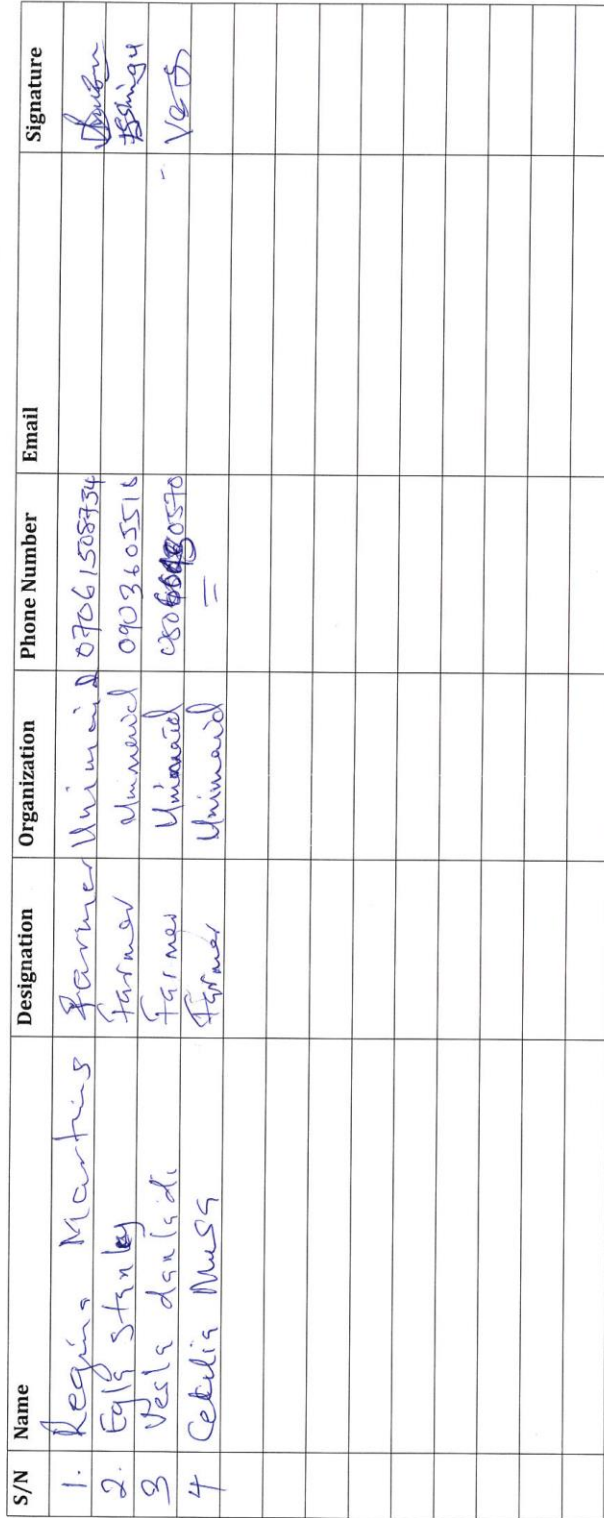 S/N Name Designation Organization Phone Number Email Signature
1. Regina Martins Farmer Unimaid 07061508734
2. Egla Stanley Farmer Unimaid 0903605516
3 Vesla danladi Farmer Unimaid
4 Cecilia Musa Farmer Unimaid =